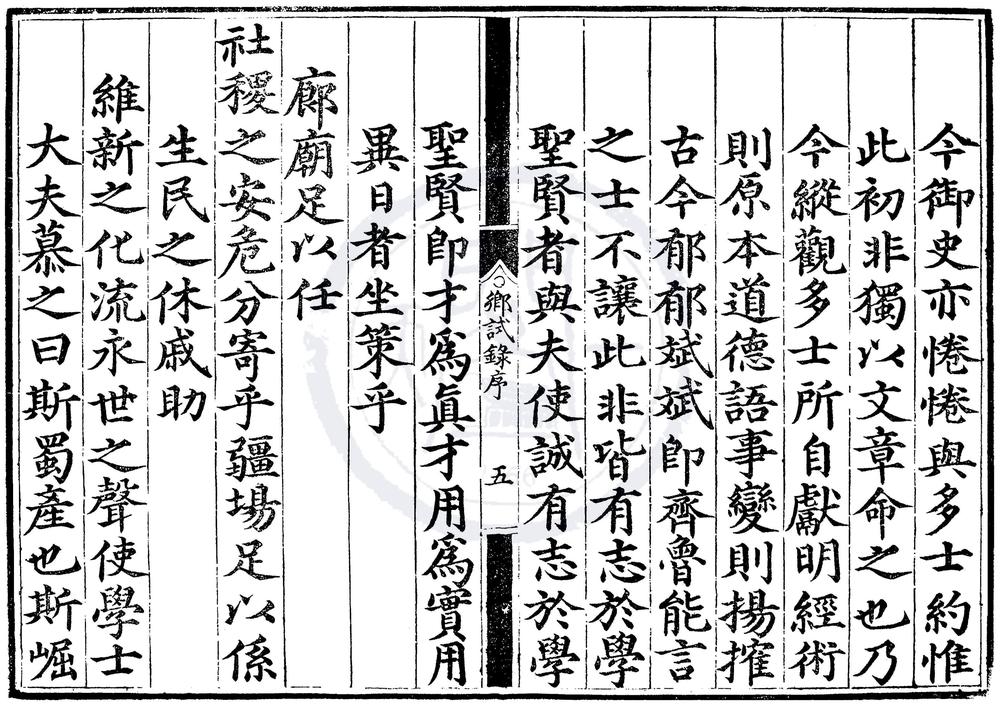 今御史亦惓惓與多士約惟
此初非獨以文章命之也乃
今縱觀多士所自獻明經術
則原本道德語事變則揚搉
古今郁郁斌斌卽齊魯能言
之士不讓此非皆有志於學
聖賢者與夫使誠有志於學
鄉試錄序
五
聖賢卽才爲眞才用爲實用
異日者坐策乎
廊廟足以任
社稷之安危分寄乎疆埸足以係
生民之休戚助
維新之化流永世之聲使學士
大夫慕之曰斯蜀產也斯崛